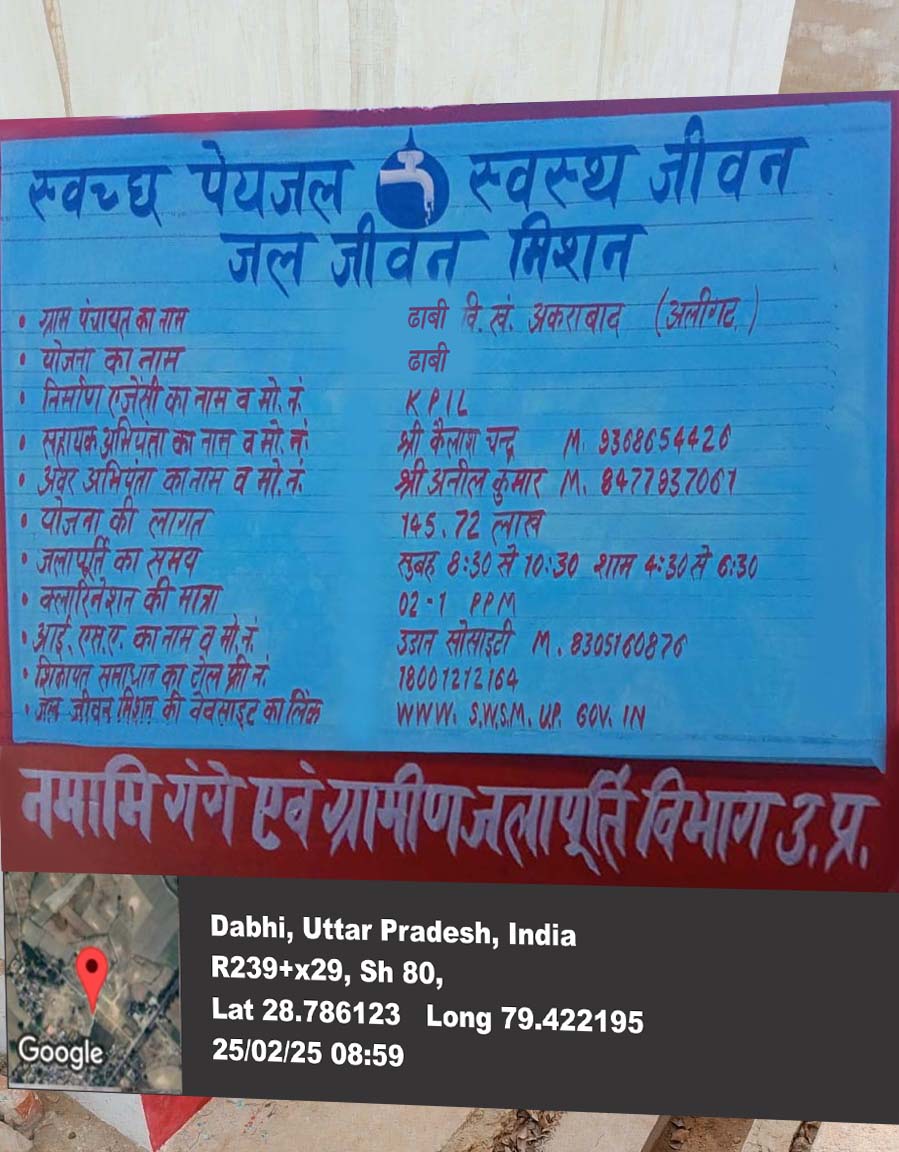 स्वच्छ पेयजल स्वस्थ जीवन
जल जीवन मिशन
• ग्राम पंचायत का नाम ढाबी वि. खं. अकराबाद (अलीगढ़)
• योजना का नाम ढाबी
• निर्माण एजेंसी का नाम व मो. नं. KPIL
• सहायक अभियंता का नाम व मो. नं. श्री कैलाश चन्द्र M. 9368654426
• अवर अभियंता का नाम व मो. नं. श्री अनील कुमार M. 8477937061
• योजना की लागत 145.72 लाख
• जलापूर्ति का समय सुबह 8:30 से 10:30 शाम 4:30 से 6:30
• क्लारिनेशन की मात्रा 02-1 PPM
• आई. एस. ए. का नाम व मो. नं. उडान सोसाइटी M. 8305160876
• शिकायत समाधान का टोल फ्री नं. 18001212164
• जल जीवन मिशन की वेबसाइट का लिंक WWW. S.W.S.M. U.P. GOV. IN
नमामि गंगे एवं ग्रामीण जलापूर्ति विभाग उ. प्र.
Dabhi, Uttar Pradesh, India
R239+x29, Sh 80,
Lat 28.786123 Long 79.422195
25/02/25 08:59
Google